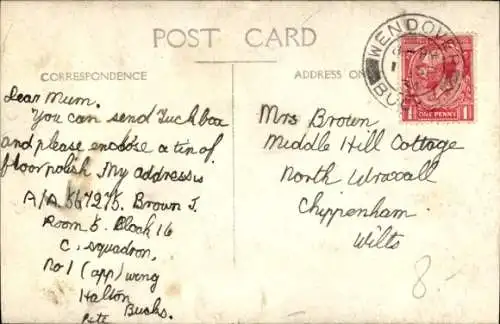 POST CARD
CORRESPONDENCE
ADDRESS ON
Dear Mum.
You can send Tuck box
and please enclose a tin of
floor polish My address is
A/A. 567275. Brown J.
Room 5. Block 16
C, squadron,
No 1 (app) wing
Halton
Bucks.
Mrs Brown
Middle Hill Cottage
North Wraxall
Chippenham
Wilts
WENDOVE
BU
ONE PENNY
8-